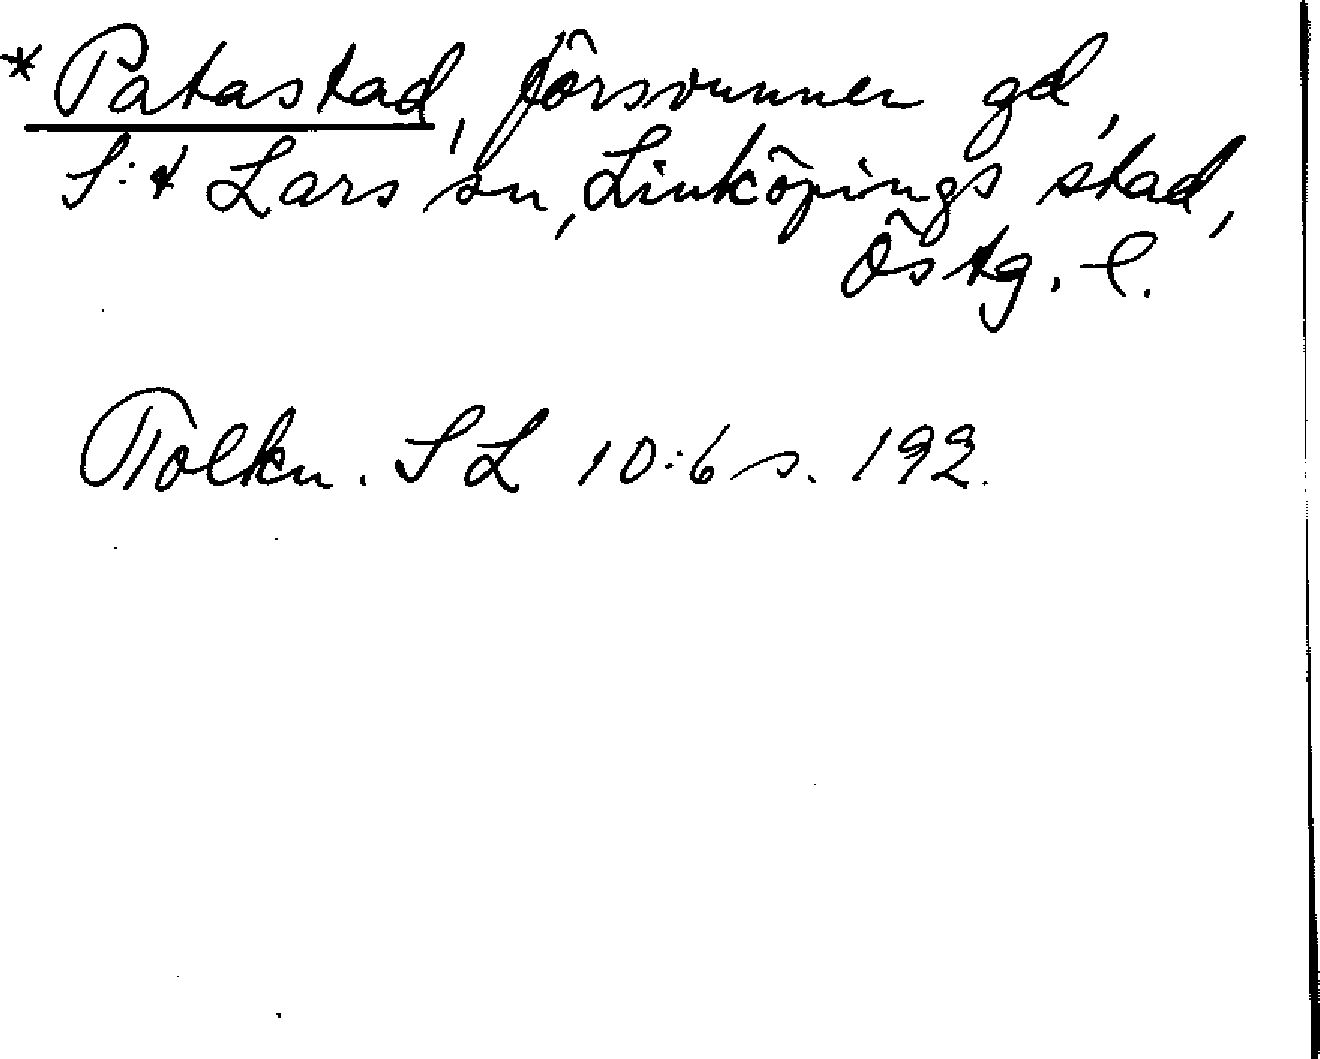 * Patastad, försvunnen gd,
S:t Lars sn, Linköpings stad,
Östg. l.
Tolkn. SL 10:6 s. 192.